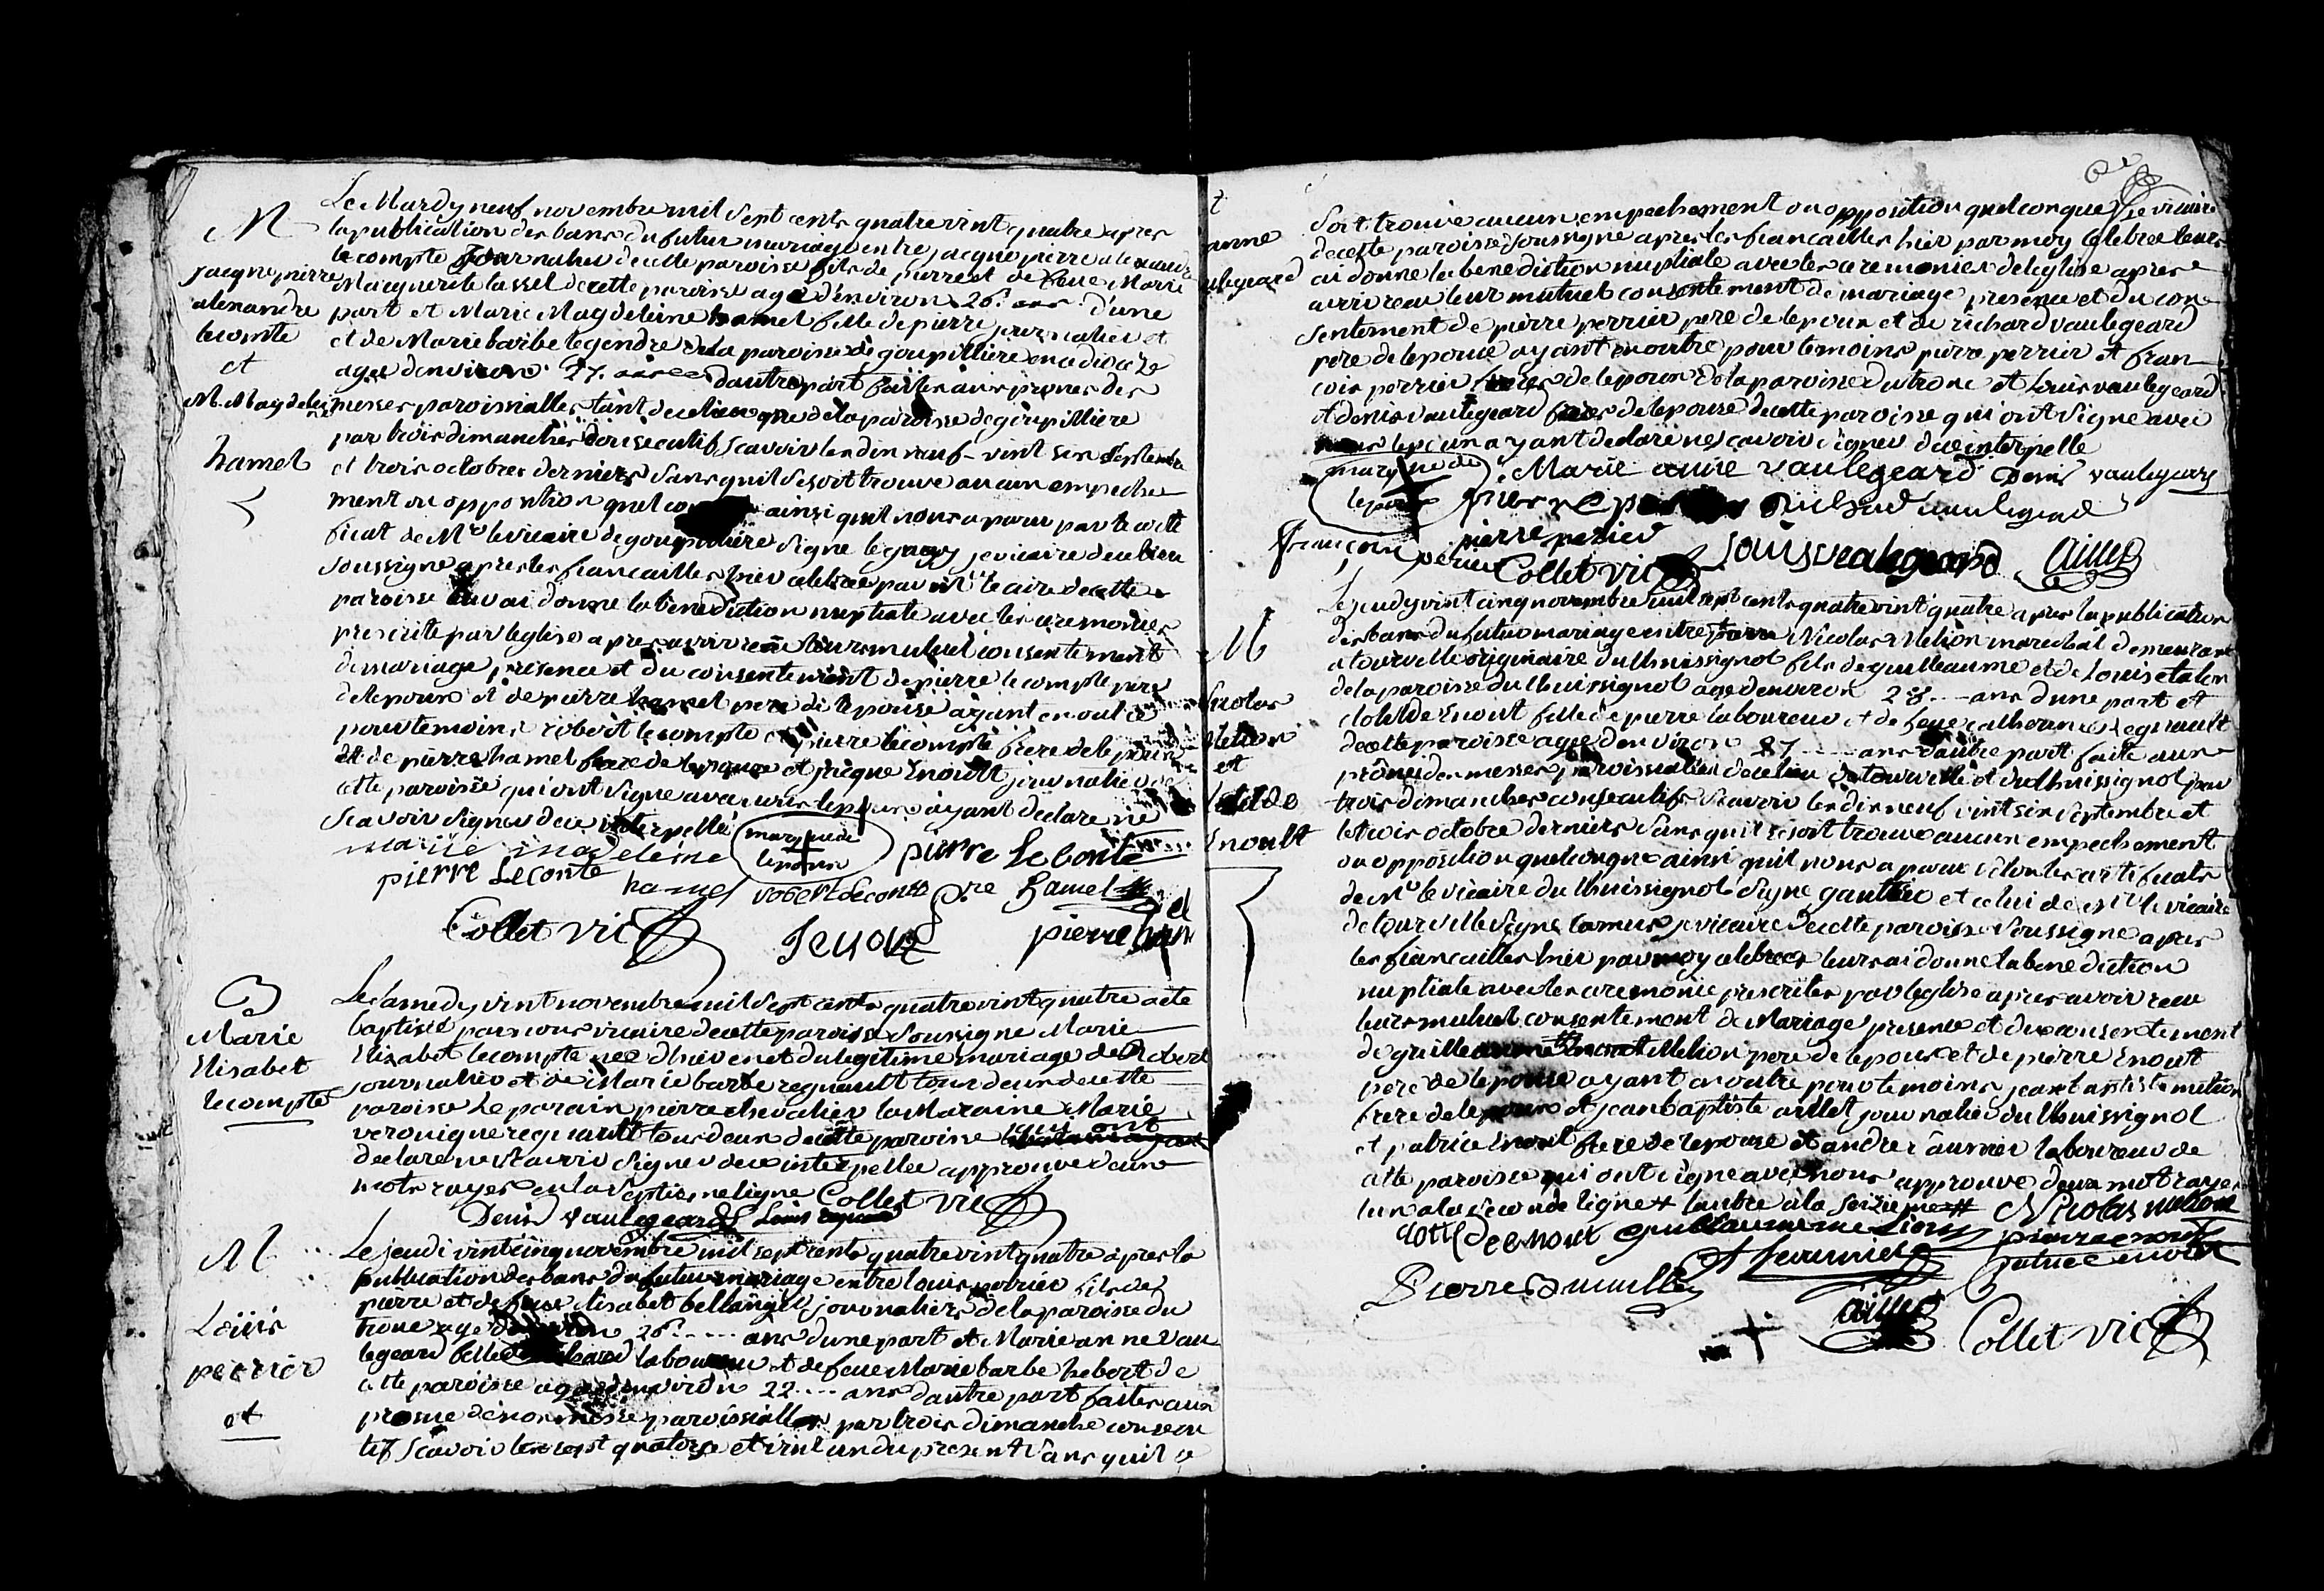 M
jacque pierre
alexandre
lecomte
et
M. Magdeleine
hamel
Le Mardy neuf novembre mil sept cents quatre vint quatre apres
la publication des bans du futur mariage entre jacque pierre alexandre
le compte journalier de cette paroisse fils de pierre et de feue Marie
Marguerite lassel de cette paroisse agé d'environ 26. ans d'une
part et Marie Magdeleine hamel fille de pierre journalier et
et de Marie barbe legendre de la paroisse de goupilliere
agée denviron 27. dautre part faites aux prones des
messes paroissialles tant de ce lieu que de la paroisse de goupilliere
par trois dimanches consecutifs scavoir les dix neuf vint six septembre
et trois octobres derniers sans quil se soit trouve aucun empeche
ment ou opposition quel ainsi quil nous a paru par le certi
ficat de Mr le vicaire de goupilliere signe je vicaire de ce lieu
soussigne apres les fiancailles hier celebree par de cette
paroisse ai donne la benediction nuptiale avec les ceremonies
prescrite par leglise apres avoir receu leurs mutuel consentement
de mariage presence et du consentement de pierre le compte pere
de lepoux et de pierre hamel pere de lepouse ayant en outre
pour temoins robert le compte et pierre lecompte frere de lepoux
et de pierre hamel frere de lepouse et jacque Enoult journalier de
cette paroisse qui ont signe avec nous lepoux ayant declare ne
scavoir signer de ce interpellé
marie madeleine hamel
marque de lepoux
pierre Leconte
pierre Leconte
robert Leconte
pre hamel
Collet vic
pierre
B
Marie
Elisabet
lecompte
Le Samedy vint novembre mil sept cents quatre vint quatre a ete
baptisée par nous vicaire de cette paroisse soussigne Marie
Elizabet lecompte née dhier en et du legitime mariage de Robert
journalier et de Marie barbe regnault tous deux de cette
paroisse Le parain pierre chevalier la Maraine Marie
veronique regnault tous deux de cette paroisse qui ont
declare ne scavoir signer de ce interpellée approuve deux
mots rayes en la septieme ligne Collet vic
Denis vaulegeard
M
Louis
perrier
et
Le jeudi vint cinq novembre mil sept cents quatre vint quatre apres la
publication des bans du futur mariage entre louis perrier fils de
pierre et de feue Elisabet bellanger journaliers de la paroisse du
trone age 26 ans dune part et Marie anne vau
legeard fille laboureur et de feue Marie barbe hebert de
cette paroisse agée denviron 22 ans dautre part faites aux
prosne de nos messe paroissialles par trois dimanche consecu
tif scavoir les sept quatorse et vint un du present sans quil se
anne
vaulegeard
soit trouve aucun empechement ou opposition quelconque je vicaire
de cette paroisse soussigne apres les fiancailles hier par moy celebree leurs
ai donne la benediction nuptiale avec les ceremonies de leglise apres
avoir receu leur mutuel consentement de mariage presence et du con
sentement de pierre perrier pere de lepoux et de richard vaulegeard
pere de lepouse ayant en outre pour temoins pierre perrier et fran
cois perrier freres de lepoux de la paroisse du trone et Louis vaulegeard
et denis vaulegeard freres de lepouse de cette paroisse qui ont signe avec
nous lepoux ayant declare ne scavoir signer de ce interpelle
marque de lepoux
Marie anne vaulegeard Denis vaulegeard
Richard vaulegeard
francois perier
pierre perier
Louis vaulegeard
Collet vic
aillet
M
Nicolas
Melion
et
Clotilde
Enoult
Le jeudy vint cinq novembre mil sept cents quatre vint quatre apres la publication
des bans du futur mariage entre Nicolas Melion marechal demeurant
a tourville originaire du thuissignol fils de guilleaume et de
de la paroisse du thuissignol age denviron 28 ans dune part et
Clotilde Enoult fille de pierre laboureur et de feue catherine Regnault
de cette paroisse agee denviron 27 ans dautre part faite aux
prônes des messes paroissialles de ce lieu de tourville et du thuissignol par
trois dimanches consecutifs scavoir les dix neuf vint six septembre et
le trois octobre derniers sans quil se soit trouve aucun empechement
ou opposition quelconque ainsi quil nous a paru selon les certificats
de Mr le vicaire du thuissignol signe gautier et celui de Mr le vicaire
de tourville signe camus je vicaire de cette paroisse soussigne apres
les fiancailles hier par moy celebrees leurs ai donne la benediction
nuptiale avec les ceremonie prescrites par leglise apres avoir receu
leurs mutuel consentement de Mariage presence et du consentement
de guilleaume Melion pere de lepoux et de pierre Enoult
pere de lepouse ayant en outre pour temoins jean baptiste melion
frere de lepoux et jean baptiste aillet journalier du thuissignol
et patrice Enoult frere de lepouse et andrer laboureur de
cette paroisse qui ont signe avec nous approuve deux mot rayes
lun a la seconde ligne et lautre a la seizieme Nicolas melion
Clotilde enoult guillaume melion pierre enoult
patrice enoult
Pierre
aillet
Collet vic